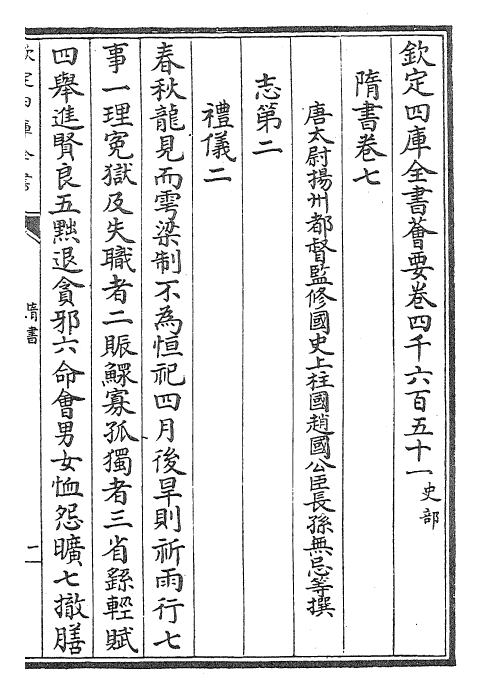 欽定四庫全書薈要卷四千六百五十一史部
隋書卷七
唐太尉揚州都督監修國史上柱國趙國公臣長孫無忌等撰
志第二
禮儀二
春秋龍見而雩梁制不為恒祀四月後旱則祈雨行七
事一理寃獄及失職者二賑鰥寡孤獨者三省繇輕賦
四舉進賢良五黜退貪邪六命會男女恤怨曠七撤膳
欽定四庫全書
隋書
一